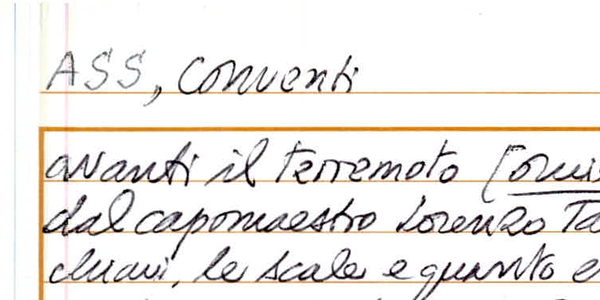 ASS, Conventi
avanti il terremoto [omis
dal capomaestro Lorenzo Ta
chiavi, le scale e quanto e